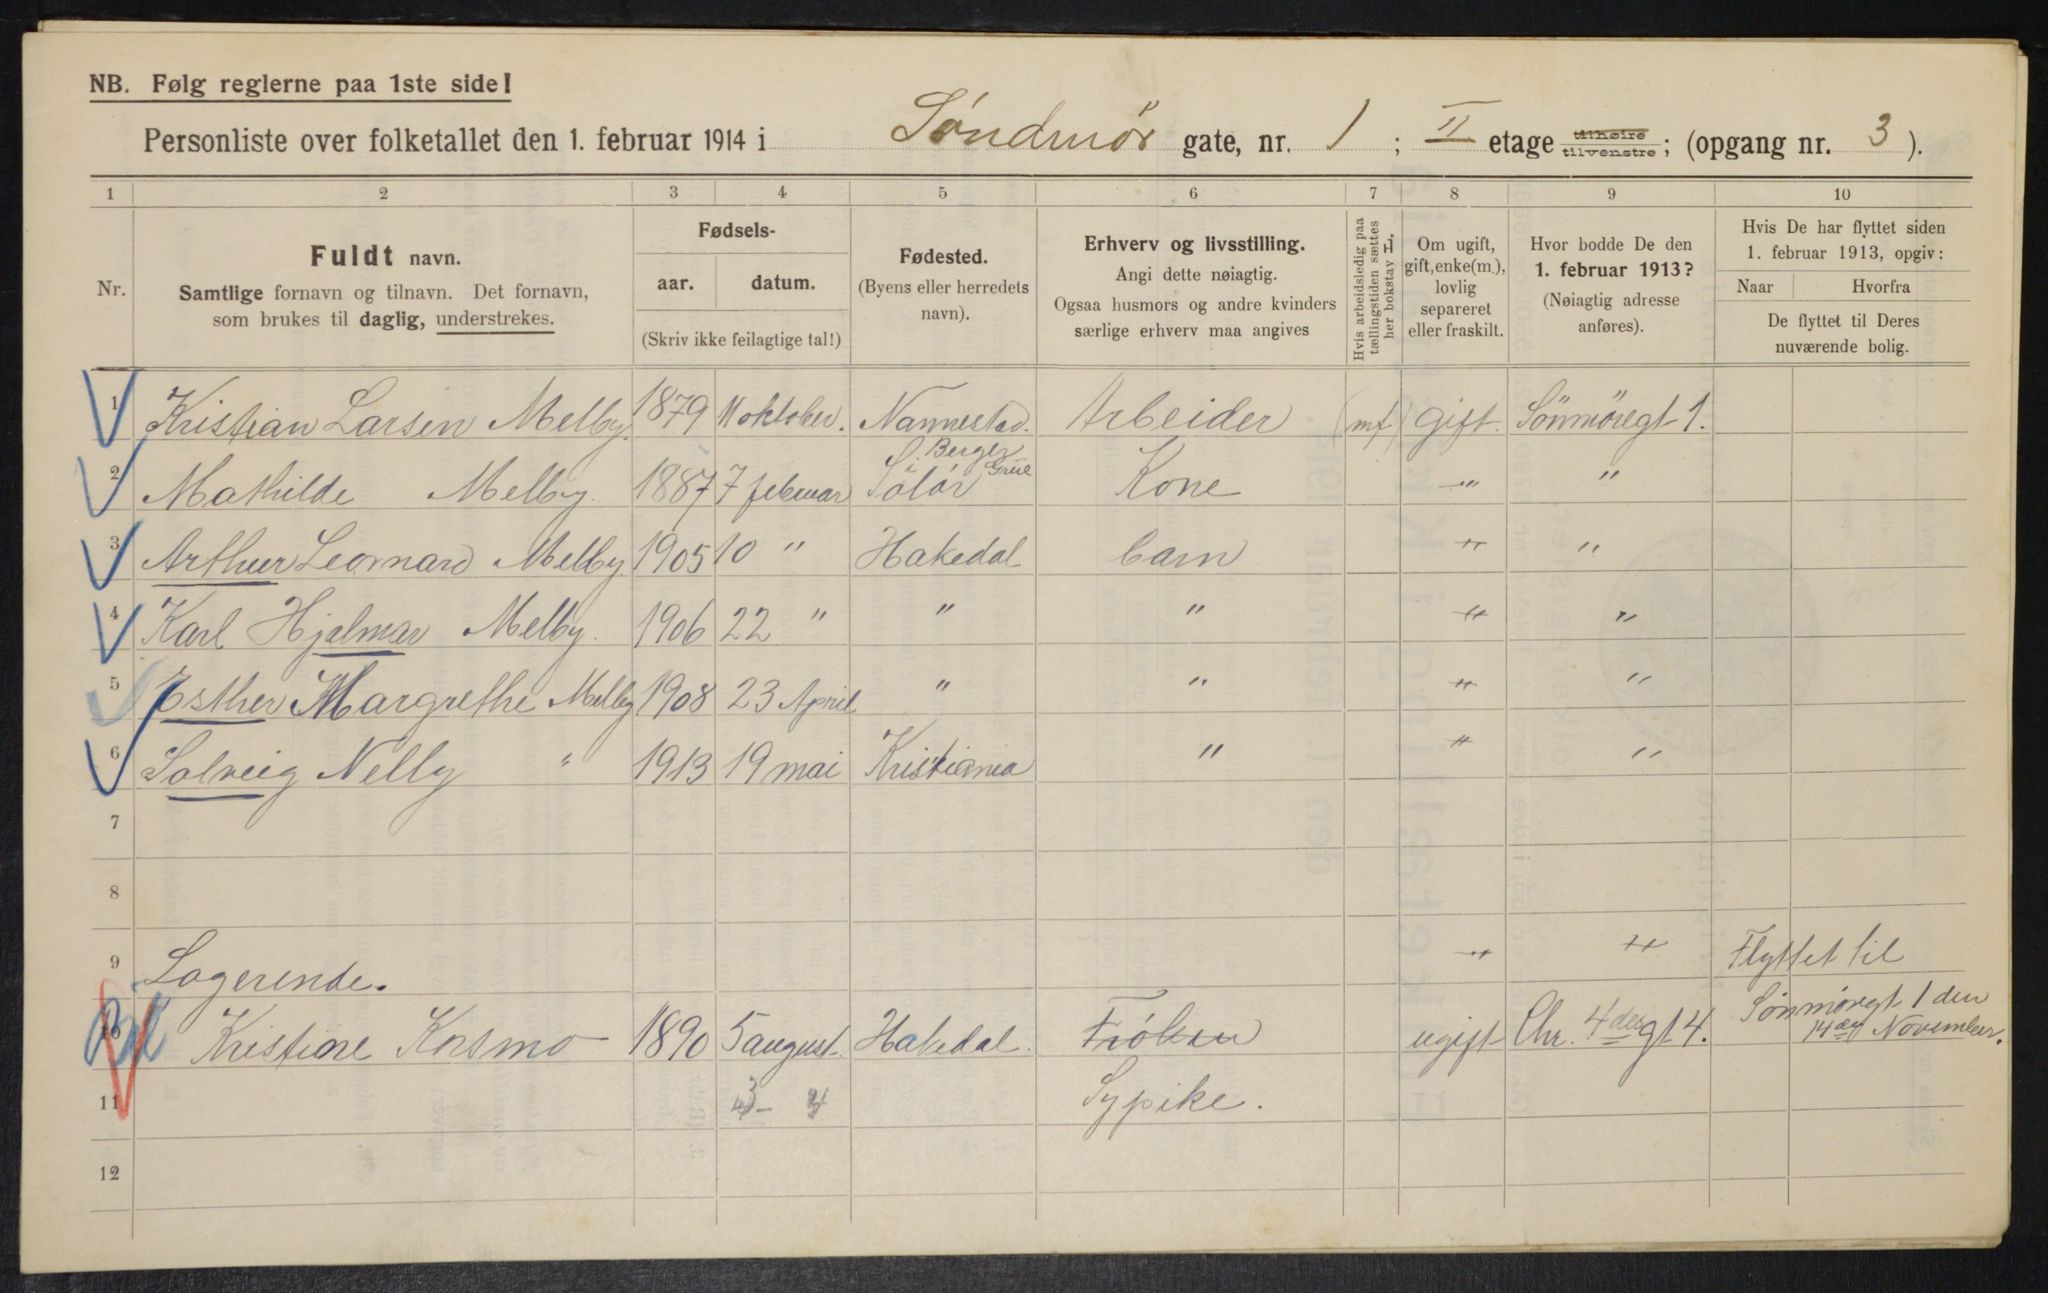 NB. Følg reglerne paa 1ste side!
Personliste over folketallet den 1. februar 1914 i Søndmør gate, nr. 1 ; II etage tilhøire tilvenstre; (opgang nr. 3).
1 2 3 4 5 6 7 8 9 10
Nr.
Fuldt navn.
Samtlige fornavn og tilnavn. Det fornavn,
som brukes til daglig, understrekes.
Fødsels-
aar. datum.
(Skriv ikke feilagtige tal!)
Fødested.
(Byens eller herredets
navn).
Erhverv og livsstilling.
Angi dette nøiagtig.
Ogsaa husmors og andre kvinders
særlige erhverv maa angives
Hvis arbeidsledig paa
tællingstiden sættes
her bokstav L.
Om ugift,
gift, enke(m.),
lovlig
separeret
eller fraskilt.
Hvor bodde De den
1. februar 1913?
(Nøiagtig adresse
anføres).
Hvis De har flyttet siden
1. februar 1913, opgiv:
Naar Hvorfra
De flyttet til Deres
nuværende bolig.
1 Kristian Larsen Melby. 1879 11 oktober. Nannestad. Arbeider (mf) gift. Sönmöregt 1.
Berger
Grue
2 Mathilde Melby. 1887 7 februar Solør Kone " "
3 Arthur Leonnard Melby 1905 10 " Hakedal barn " "
4 Karl Hjalmar Melby. 1906 22 " " " " "
5 Esther Margrethe Melby 1908 23 April " " " "
6 Solveig Nelly " 1913 19 mai Kristiania " " "
7
8
9 Logerende. " " Flyttet til
Sönmöregt 1 den
14de November.
10 Kristine Kosmo 1890 5 august. Hakedal. Frøken ugift Chr. 4des gt 4.
11 Sypike.
12